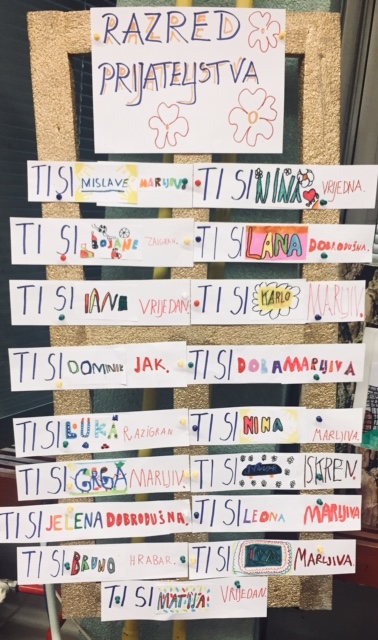 RAZRED
PRIJATELJSTVA
TI SI MISLAVE MARLJIV.
TI SI NINA VRIJEDNA.
TI SI BOJANE ZAIGRAN.
TI SI LANA DOBRODUŠNA.
TI SI VRIJEDAN.
TI SI KARLO MARLJIV.
TI SI DOMINIK JAK.
TI SI DORA MARLJIVA
TI SI LUKA RAZIGRAN
TI SI NINA MARLJIVA.
TI SI GRGA MARLJIV.
TI SI ISKREN.
TI SI JELENA DOBRODUŠNA.
TI SI LEONA MARLJIVA
TI SI BRUNO HRABAR.
TI SI MARLJIVA.
TI SI MATIJA VRIJEDAN.